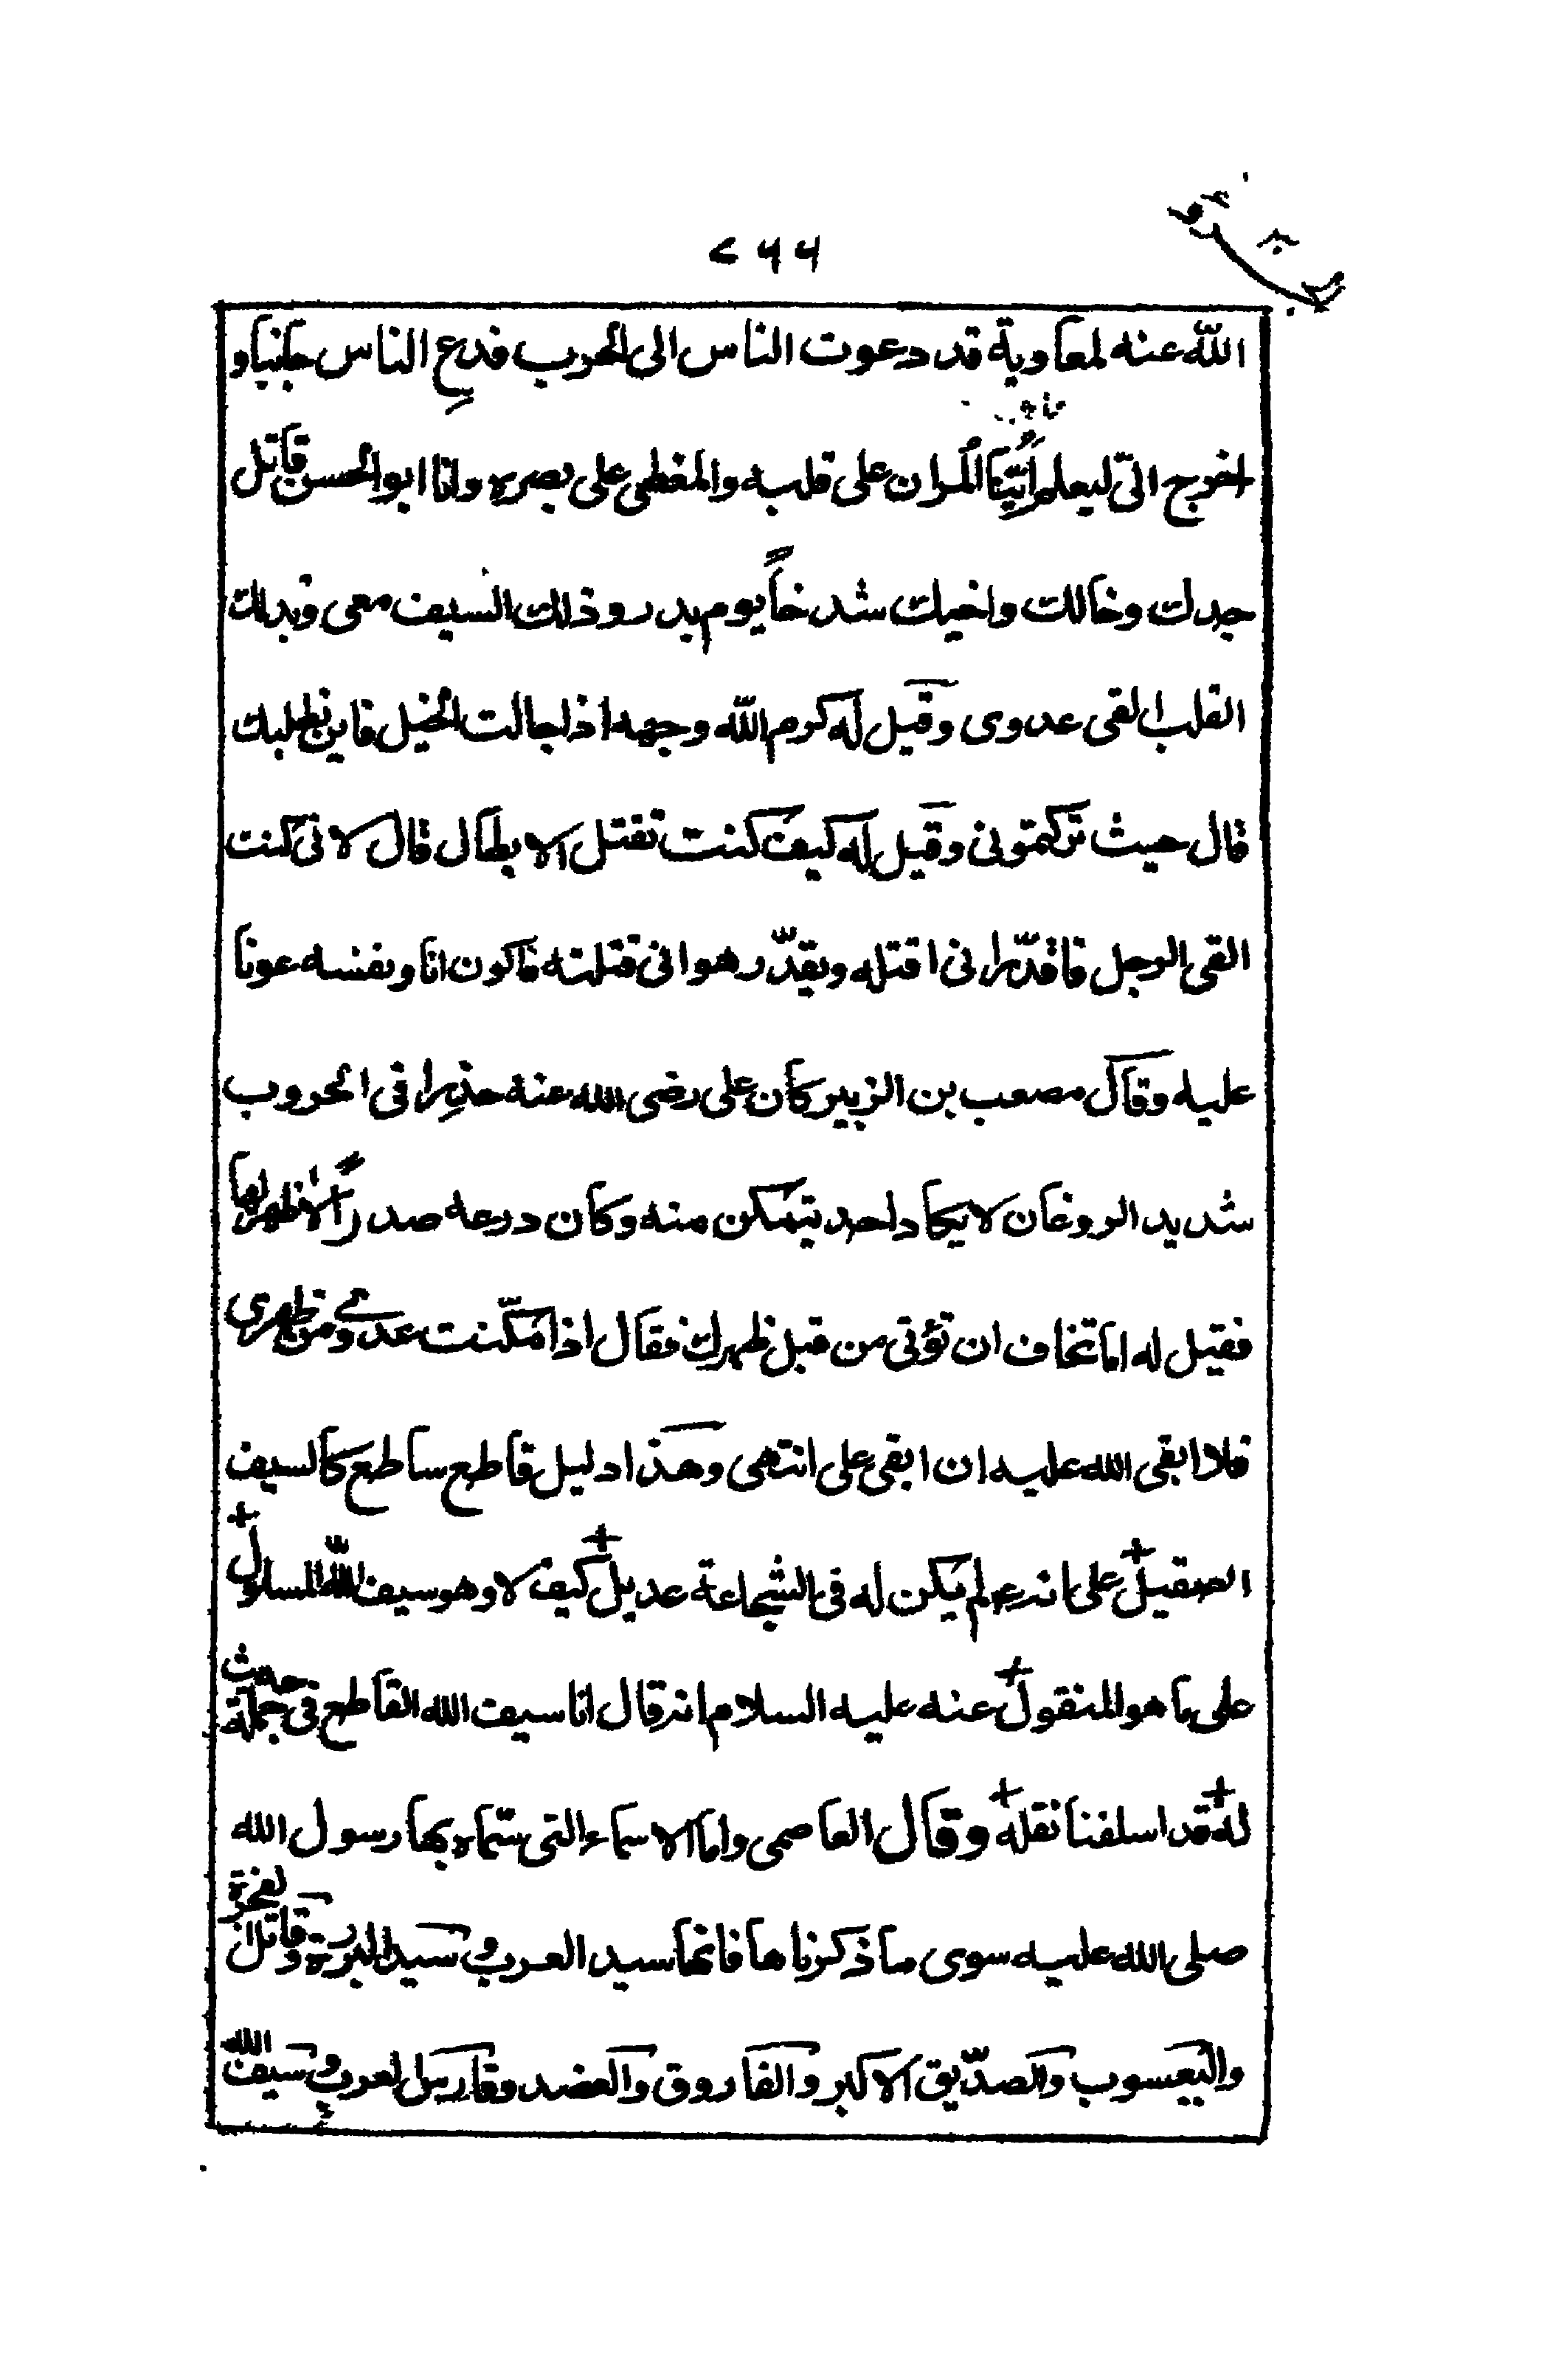 ۲۶۶
الله عنه لمعاوية قد دعوت الناس الى الحرب فدع الناس جانبا و
اخرج الىّ ليعلم اَيُّنَا المران على قلبه والمغطى على بصره وانا ابو الحسن قاتل
جدك وخالك واخيك شدخاً يوم بدر وذلك السيف معى وبدلك
القلب القى عدوى وقيل له كرم الله وجهه اذا جالت الخيل فاين نطلبك
قال حيث تركتمونى وقيل له كيف كنت تقتل الابطال قال لانى كنت
القى الرجل فاقدّر انى اقتله ويقدّر هو انى قتلته فاكون انا ونفسه عونا
عليه وقال مصعب بن الزبير كان على رضى الله عنه حذِرا فى الحروب
شديد الروغان لا يكاد احد يتمكن منه وكان درعه صدراً لا ظهر لها
فقيل له اما تخاف ان تؤتى من قبل ظهرك فقال اذا مكّنت عدوى من ظهرى
فلا ابقى الله عليه ان ابقى على انتهى وهذا دليل قاطع ساطع كالسيف
الصقيل على انه لم يكن له فى الشجاعة عديل كيف لا وهو سيف الله المسلول
على ما هو المنقول عنه عليه السلام انه قال انا سيف الله القاطع فى جملة حديث
له قد اسلفنا نقله وقال العاصمى واما الاسماء التى سمّاه بها رسول الله
صلى الله عليه سوى ما ذكرناها فانها سيد العرب وسيد البررة وقاتل الفجرة
واليعسوب والصدّيق الاكبر والفاروق والعضد وفارس العرب وسيف الله